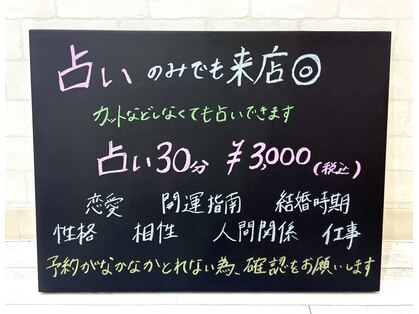 占いのみでも来店◎
カットなどしなくても占いできます
占い30分 ¥3,000(税込)
恋愛 開運指南 結婚時期
性格 相性 人間関係 仕事
予約がなかなかとれない為、確認をお願いします